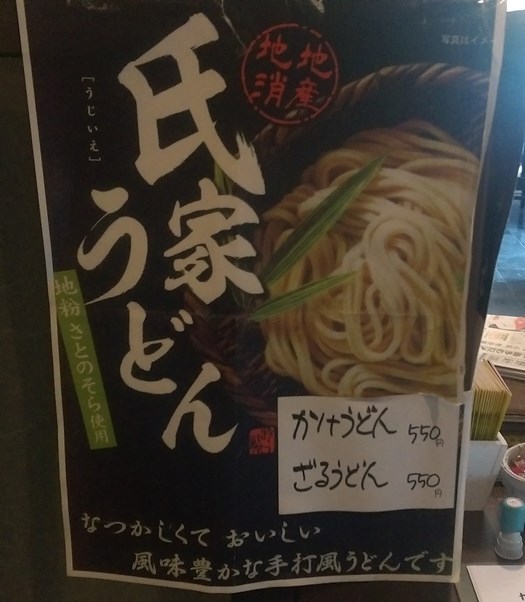 写真はイメー
地産
地消
氏家
[うじいえ]
うどん
地粉さとのそら使用
かけうどん 550円
ざるうどん 550円
なつかしくて おいしい
風味豊かな手打風うどんです